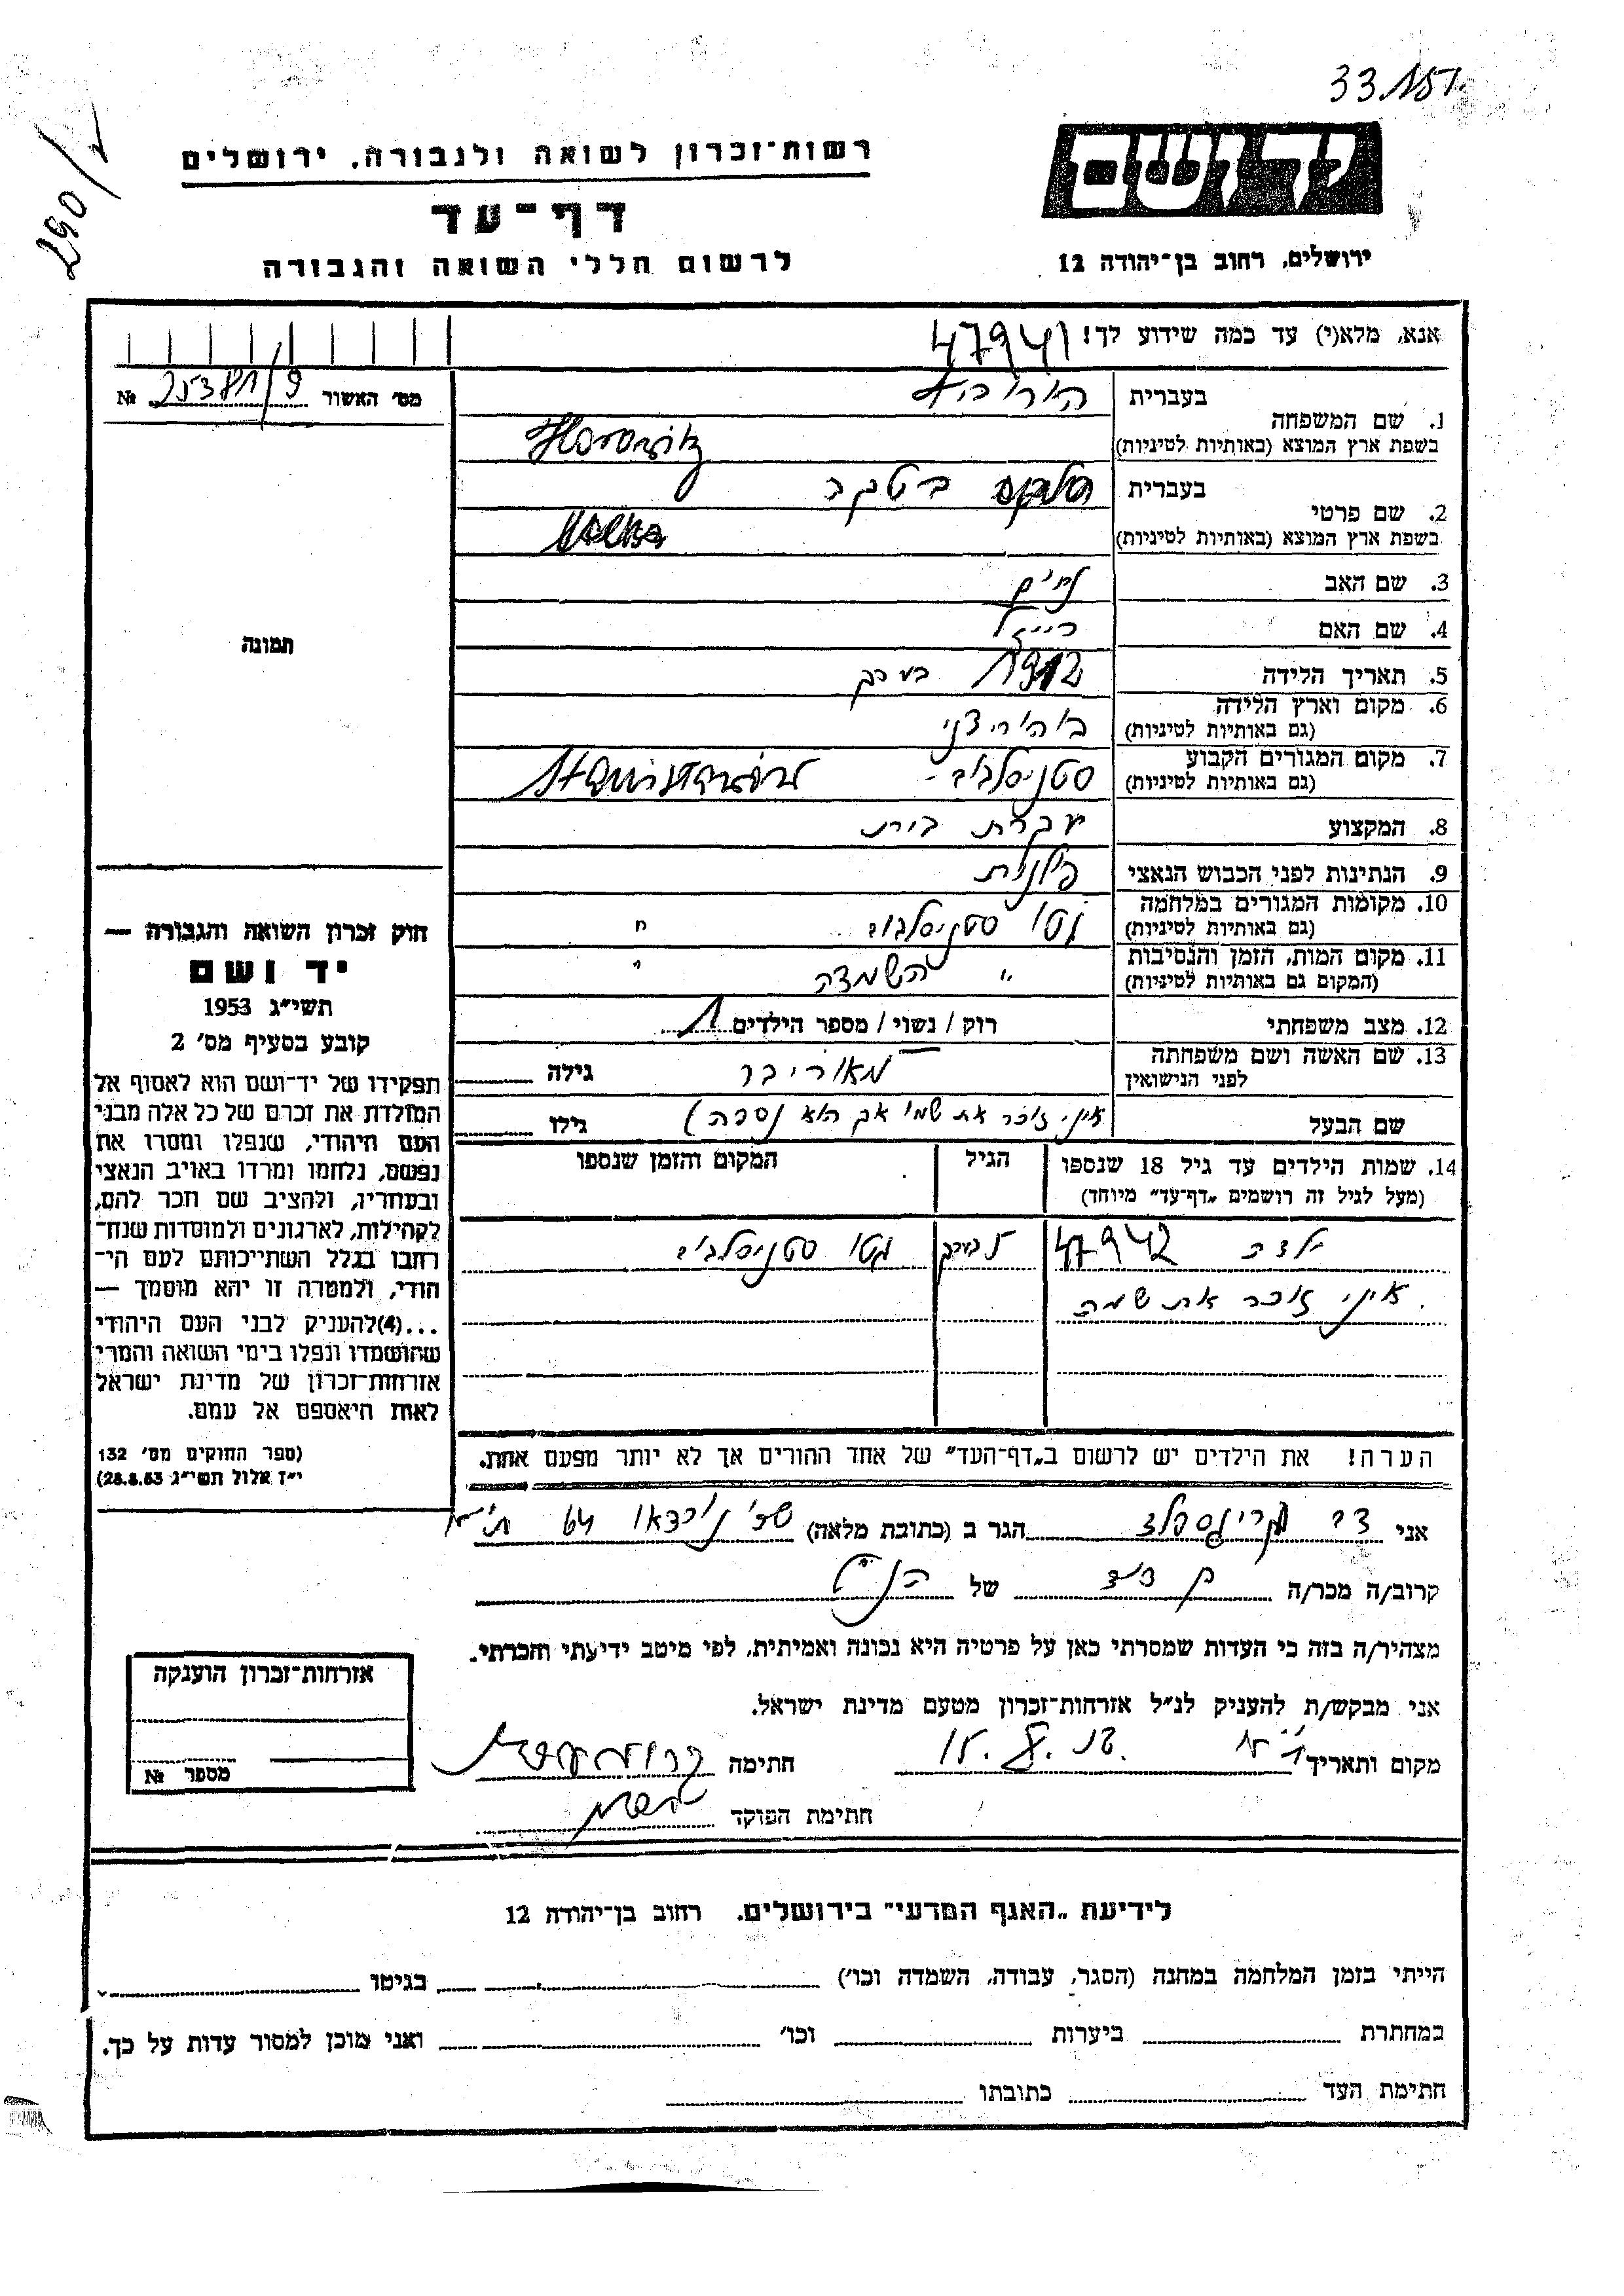 33.151
290/1
יד ושם
רשות-זכרון לשואה ולגבורה, ירושלים
דף-עד
לרשום חללי השואה והגבורה
ירושלים, רחוב בן-יהודה 12
אנא, מלא(י) עד כמה שידוע לך! 47941
מס׳ האשור 25381/9 №
תמונה
1. שם המשפחה
בעברית
בשפת ארץ המוצא (באותיות לטיניות) Horowitz
2. שם פרטי
בעברית
בשפת ארץ המוצא (באותיות לטיניות)
3. שם האב
4. שם האם
5. תאריך הלידה 1912 בערך
6. מקום וארץ הלידה
(גם באותיות לטיניות)
7. מקום המגורים הקבוע סטניסלבוב
(גם באותיות לטיניות)
8. המקצוע עקרת בית
9. הנתינות לפני הכבוש הנאצי פולנית
10. מקומות המגורים במלחמה גטו סטניסלבוב
(גם באותיות לטיניות)
11. מקום המות, הזמן והנסיבות " השמדה "
(המקום גם באותיות לטיניות)
12. מצב משפחתי רוק / נשוי / מספר הילדים 1
13. שם האשה ושם משפחתה
לפני הנישואין גילה
שם הבעל איני זוכר את שמו אך הוא נספה) גילו
14. שמות הילדים עד גיל 18 שנספו הגיל המקום והזמן שנספו
(מעל לגיל זה רושמים „דף-עד״ מיוחד)
ילדה 47942 בערך גטו סטניסלבוב
איני זוכר את שמה
הערה! את הילדים יש לרשום ב„דף-העד״ של אחד ההורים אך לא יותר מפעם אחת.
חוק זכרון השואה והגבורה —
יד ושם
תשי״ג 1953
קובע בסעיף מס׳ 2
תפקידו של יד-ושם הוא לאסוף אל
המולדת את זכרם של כל אלה מבני
העם היהודי, שנפלו ומסרו את
נפשם, נלחמו ומרדו באויב הנאצי
ובעוזריו, ולהציב שם וזכר להם,
לקהילות, לארגונים ולמוסדות שנח-
רחבו בגלל השתייכותם לעם הי-
הודי, ולמטרה זו יהא מוסמך —
...(4)להעניק לבני העם היהודי
שהושמדו ונפלו בימי השואה והמרי
אזרחות-זכרון של מדינת ישראל
לאות היאספם אל עמם.
(ספר החוקים מס׳ 132
י״ז אלול תשי״ג 28.8.53)
אני הגר ב (כתובת מלאה) שד׳ נורדאו 64 ת״א
קרוב/ה מכר/ה בן דוד של הנ״ל
מצהיר/ה בזה כי העדות שמסרתי כאן על פרטיה היא נכונה ואמיתית, לפי מיטב ידיעתי והכרתי.
אני מבקש/ת להעניק לנ״ל אזרחות-זכרון מטעם מדינת ישראל.
מקום ותאריך ת״א חתימה
חתימת הפוקד
אזרחות-זכרון הוענקה
מספר №
לידיעת „האגף המדעי״ בירושלים. רחוב בן-יהודה 12
הייתי בזמן המלחמה במחנה (הסגר, עבודה, השמדה וכו׳) בגיטו
במחתרת ביערות וכו׳ ואני מוכן למסור עדות על כך.
חתימת העד כתובתו